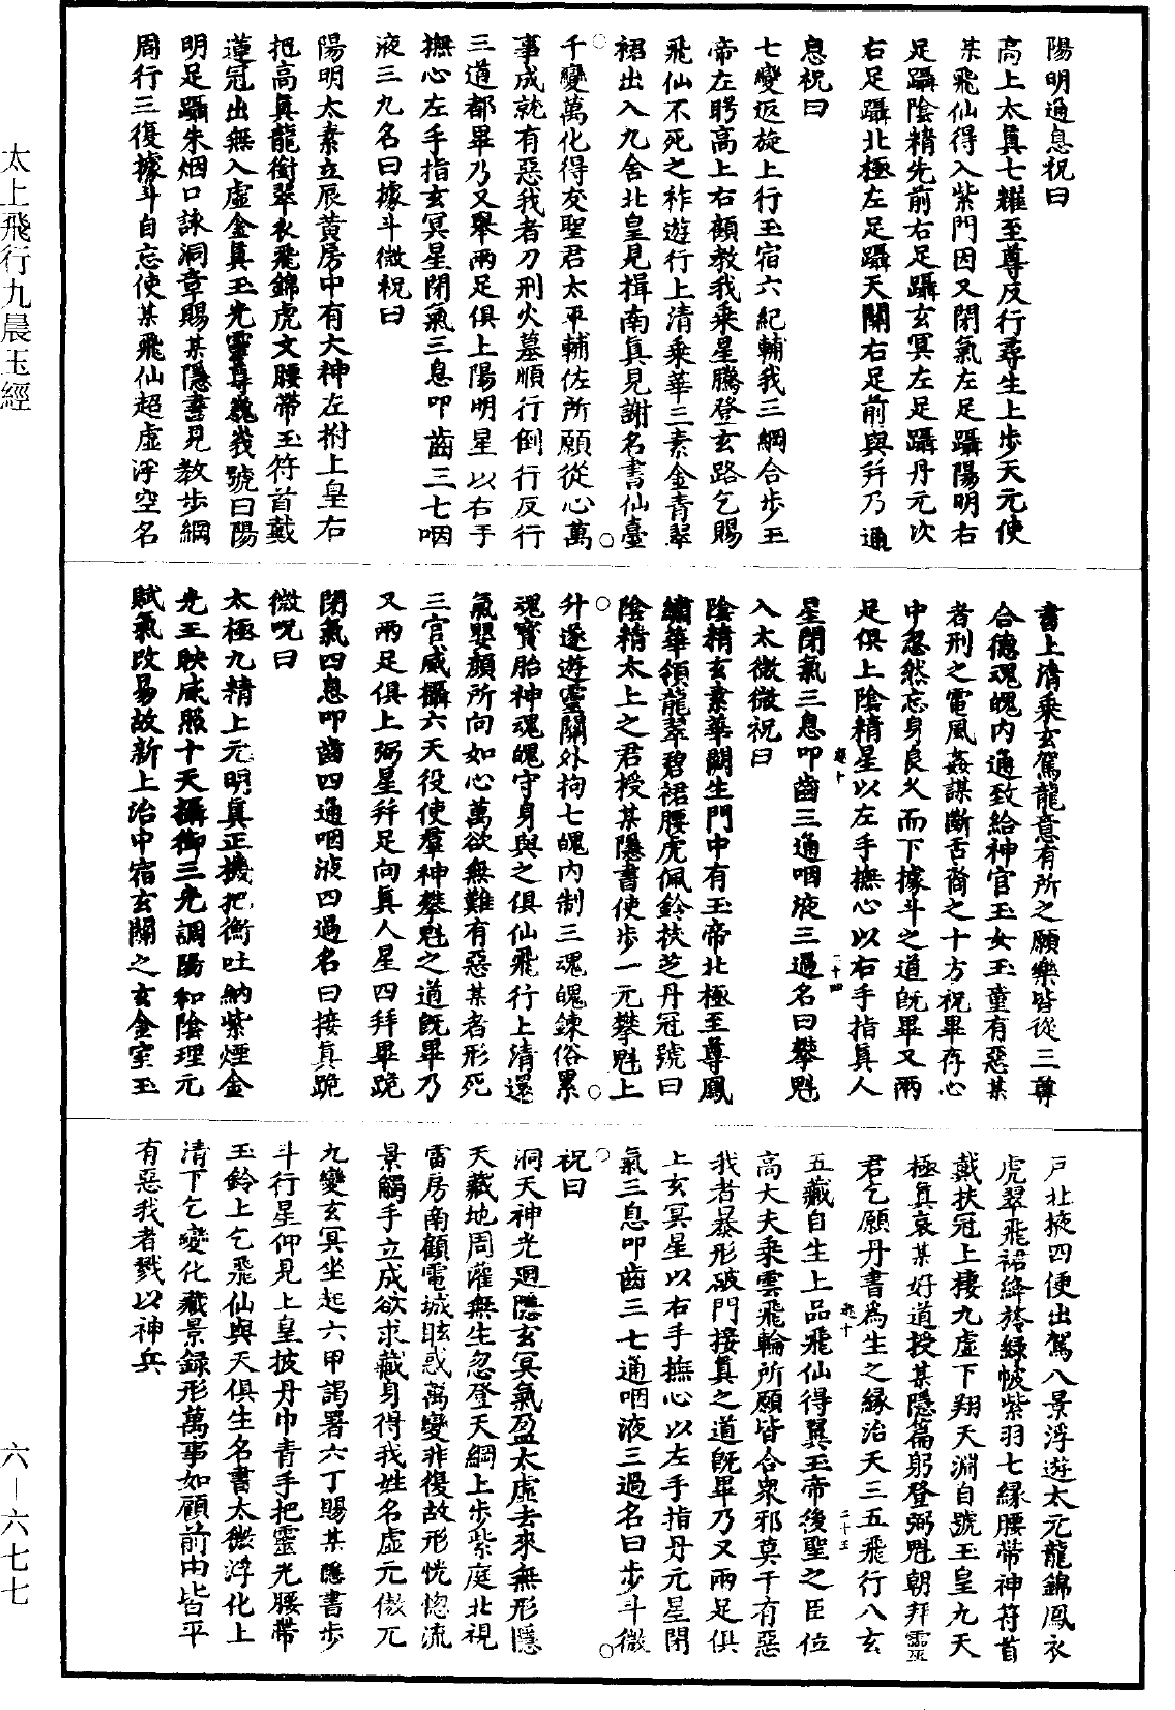 太上飛行九晨玉經
陽明通息祝曰
高上太真七耀至尊反行尋生上步天元使
某飛仙得入紫門因又閉氣左足躡陽明右
足躡陰精先前右足躡玄冥左足躡丹元次
右足躡北極左足躡天關右足前與并乃通
息祝曰
七變返旋上行玉宿六紀輔我三綱合步玉
帝左聘高上右顧教我乘星騰登玄路乞賜
飛仙不死之祚遊行上清乘華三素金青翠
裙出入九舍北皇見揖南真見謝名書仙臺
千變萬化得友聖君太平輔佐所願從心萬
事成就有惡我者刀刑火墓順行倒行反行
三道都畢乃又舉兩足俱上陽明星以右手
撫心左手指玄冥星閉氣三息叩齒三七咽
液三九名曰據斗微祝曰
陽明太素立辰黃房中有大神左柎上皇右
把高真龍銜翠衣飛錦虎文腰帶玉符首戴
蓮冠出無入虛金真玉光靈尊巍峩號曰陽
明足躡朱烟口詠洞章賜某隱書見教步綱
周行三復據斗自忘使某飛仙超虛浮空名
書上清乘玄駕龍意有所之願樂皆從三尊
合德魂魄內通致給神官玉女玉童有惡某
者刑之電風姦謀斷舌裔之十方祝畢存心
中忽然忘身良久而下據斗之道旣畢又兩
足俱上陰精星以左手撫心以右手指真人
星閉氣三息叩齒三通咽液三過名曰攀魁
入太微微祝曰
陰精玄素華闕生門中有玉帝北極至尊鳳
繡華領龍翠碧裙腰虎佩鈴扶芝丹冠號曰
陰精太上之君授某隱書使步一元攀魁上
升遂遊靈關外拘七魄內制三魂魄鍊俗累
魂寳胎神魂魄守身與之俱仙飛行上清還
氣嬰顏所向如心萬欲無難有惡某者形死
三官威攝六天役使羣神攀魁之道旣畢乃
又兩足俱上弼星并足向真人星四拜畢跪
閉氣四息叩齒四通咽液四過名曰接真跪
微呪曰
太極九精上元明真正機把衡吐納紫煙金
光玉映威照十天攝御三光調陽和陰理元
賦氣改易故新上治中宿玄關之玄金室玉
戸北掖四便出駕八景浮遊太元龍錦鳳衣
虎翠飛裙絳袴綠帔紫羽七緣腰帶神符首
戴扶冠上棲九虛下翔天淵自號玉皇九天
極真哀某好道授某隱篇躬登弼魁朝拜靈
君乞願丹書為生之緣治天三五飛行八玄
五藏自生上品飛仙得翼玉帝後聖之臣位
高大夫乘雲飛輪所願皆合衆邪莫干有惡
我者暴形破門接真之道旣畢乃又兩足俱
上玄冥星以右手撫心以左手指丹元星閉
氣三息叩齒三七通咽液三過名曰步斗微
祝曰
洞天神光迴隱玄冥氣盈太虛去來無形隱
天藏地周灌無生忽登天綱上步紫庭北視
雷房南顧電城眩惑萬變非復故形恍惚流
景觸手立成欲求藏身得我姓名虛元傲兀
九變玄冥坐起六甲謁署六丁賜某隱書步
斗行星仰見上皇披丹巾青手把靈光腰帶
玉鈴上乞飛仙與天俱生名書太微浮化上
清下乞變化藏景録形萬事如願前由皆平
有惡我者戮以神兵
六—六七七